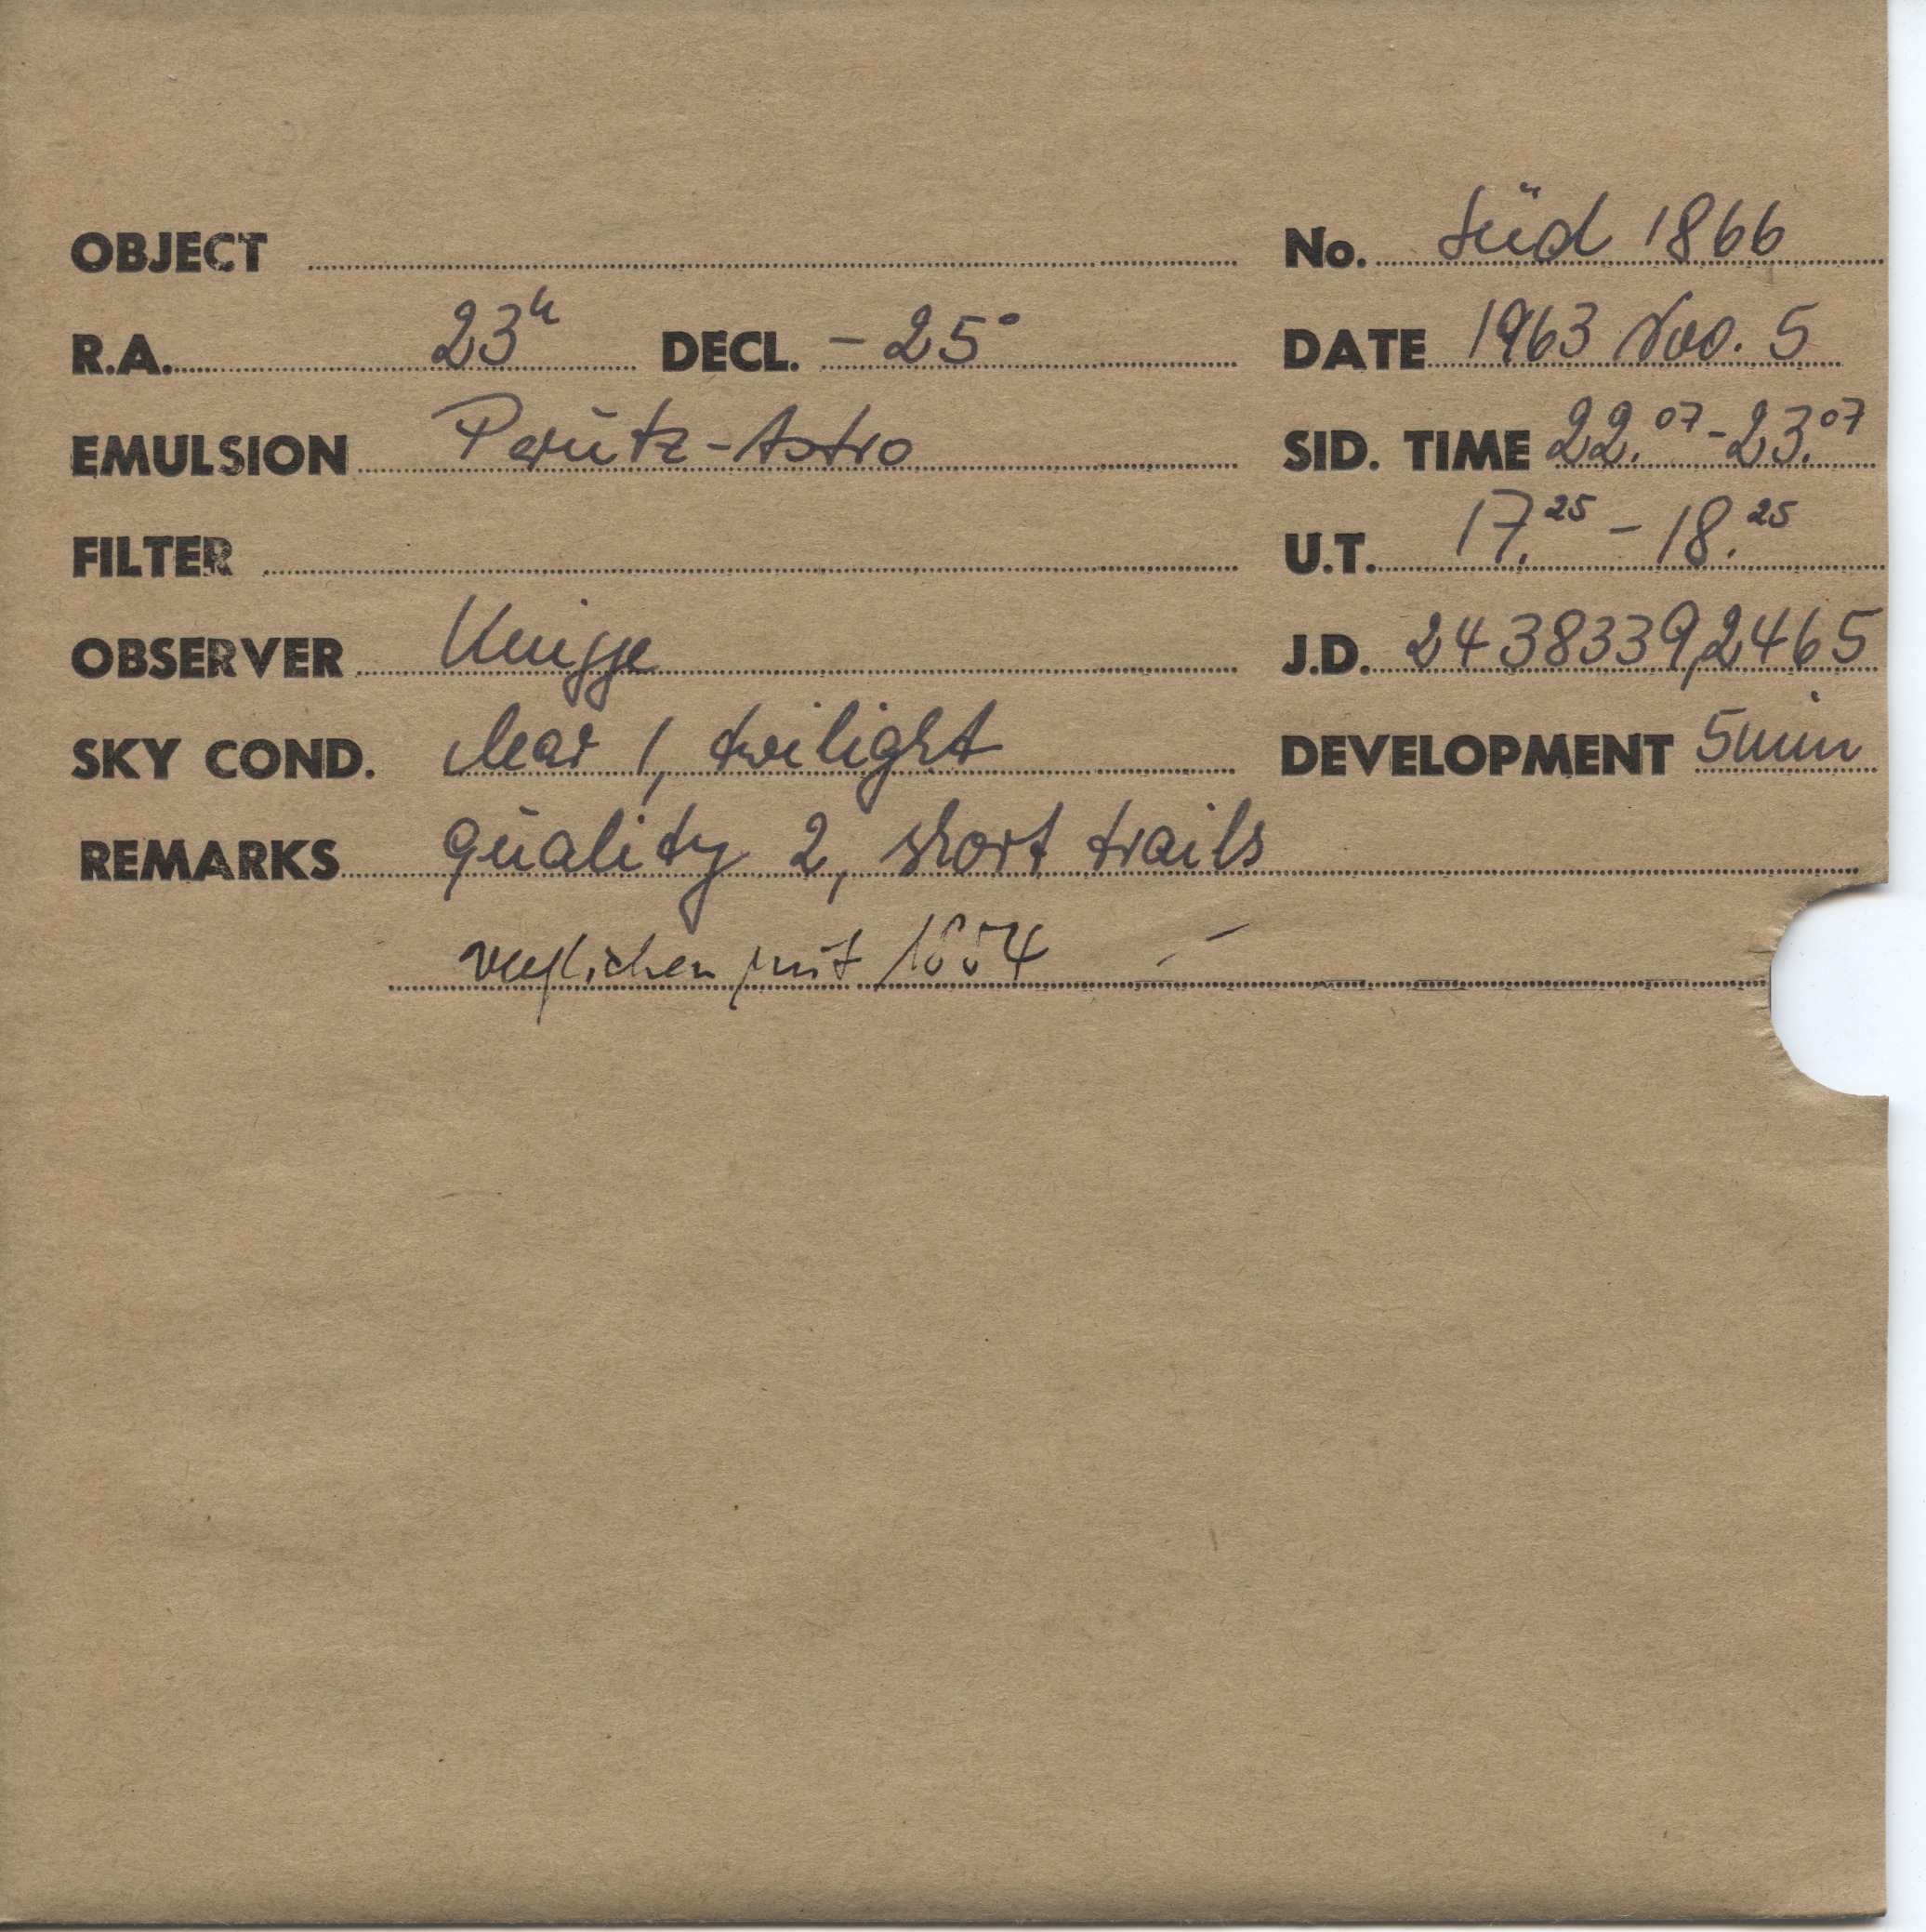 OBJECT No. Süd 1866
R.A. 23h DECL. -25° DATE 1963 Nov. 5
EMULSION Perutz-Astro SID. TIME 22.07-23.07
FILTER U.T. 17.25 - 18.25
OBSERVER Knigge J.D. 2438339,2465
SKY COND. clear 1, twilight DEVELOPMENT 5min
REMARKS quality 2, short trails
verglichen mit 1854 -